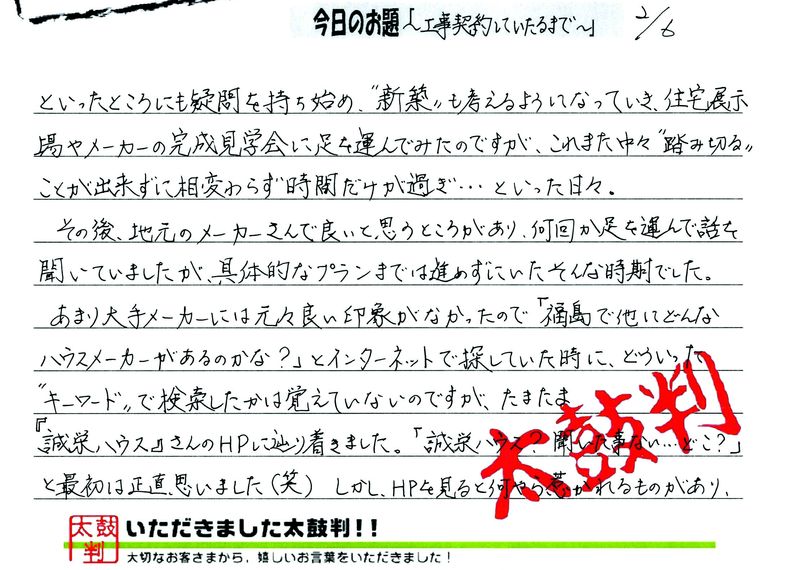 今日のお題「~工事契約していたるまで~」 2/6
といったところにも疑問を持ち始め、"新築"も考えるようになっていき、住宅展示
場やメーカーの完成見学会に足を運んでみたのですが、これまた中々"踏み切る"
ことが出来ずに相変わらず時間だけが過ぎ…といった日々。
その後、地元のメーカーさんで良いと思うところがあり、何回か足を運んで話を
聞いていましたが、具体的なプランまでは進めずにいたそんな時期でした。
あまり大手メーカーには元々良い印象がなかったので「福島で他にどんな
ハウスメーカーがあるのかな?」とインターネットで探していた時に、どういった
"キーワード"で検索したかは覚えていないのですが、たまたま
『誠栄ハウス』さんのHPに辿り着きました。「誠栄ハウス?聞いた事ない…どこ?」
と最初は正直思いました(笑) しかし、HPを見ると何やら惹かれるものがあり、
太鼓判
太鼓判 いただきました太鼓判!!
大切なお客さまから、嬉しいお言葉をいただきました!